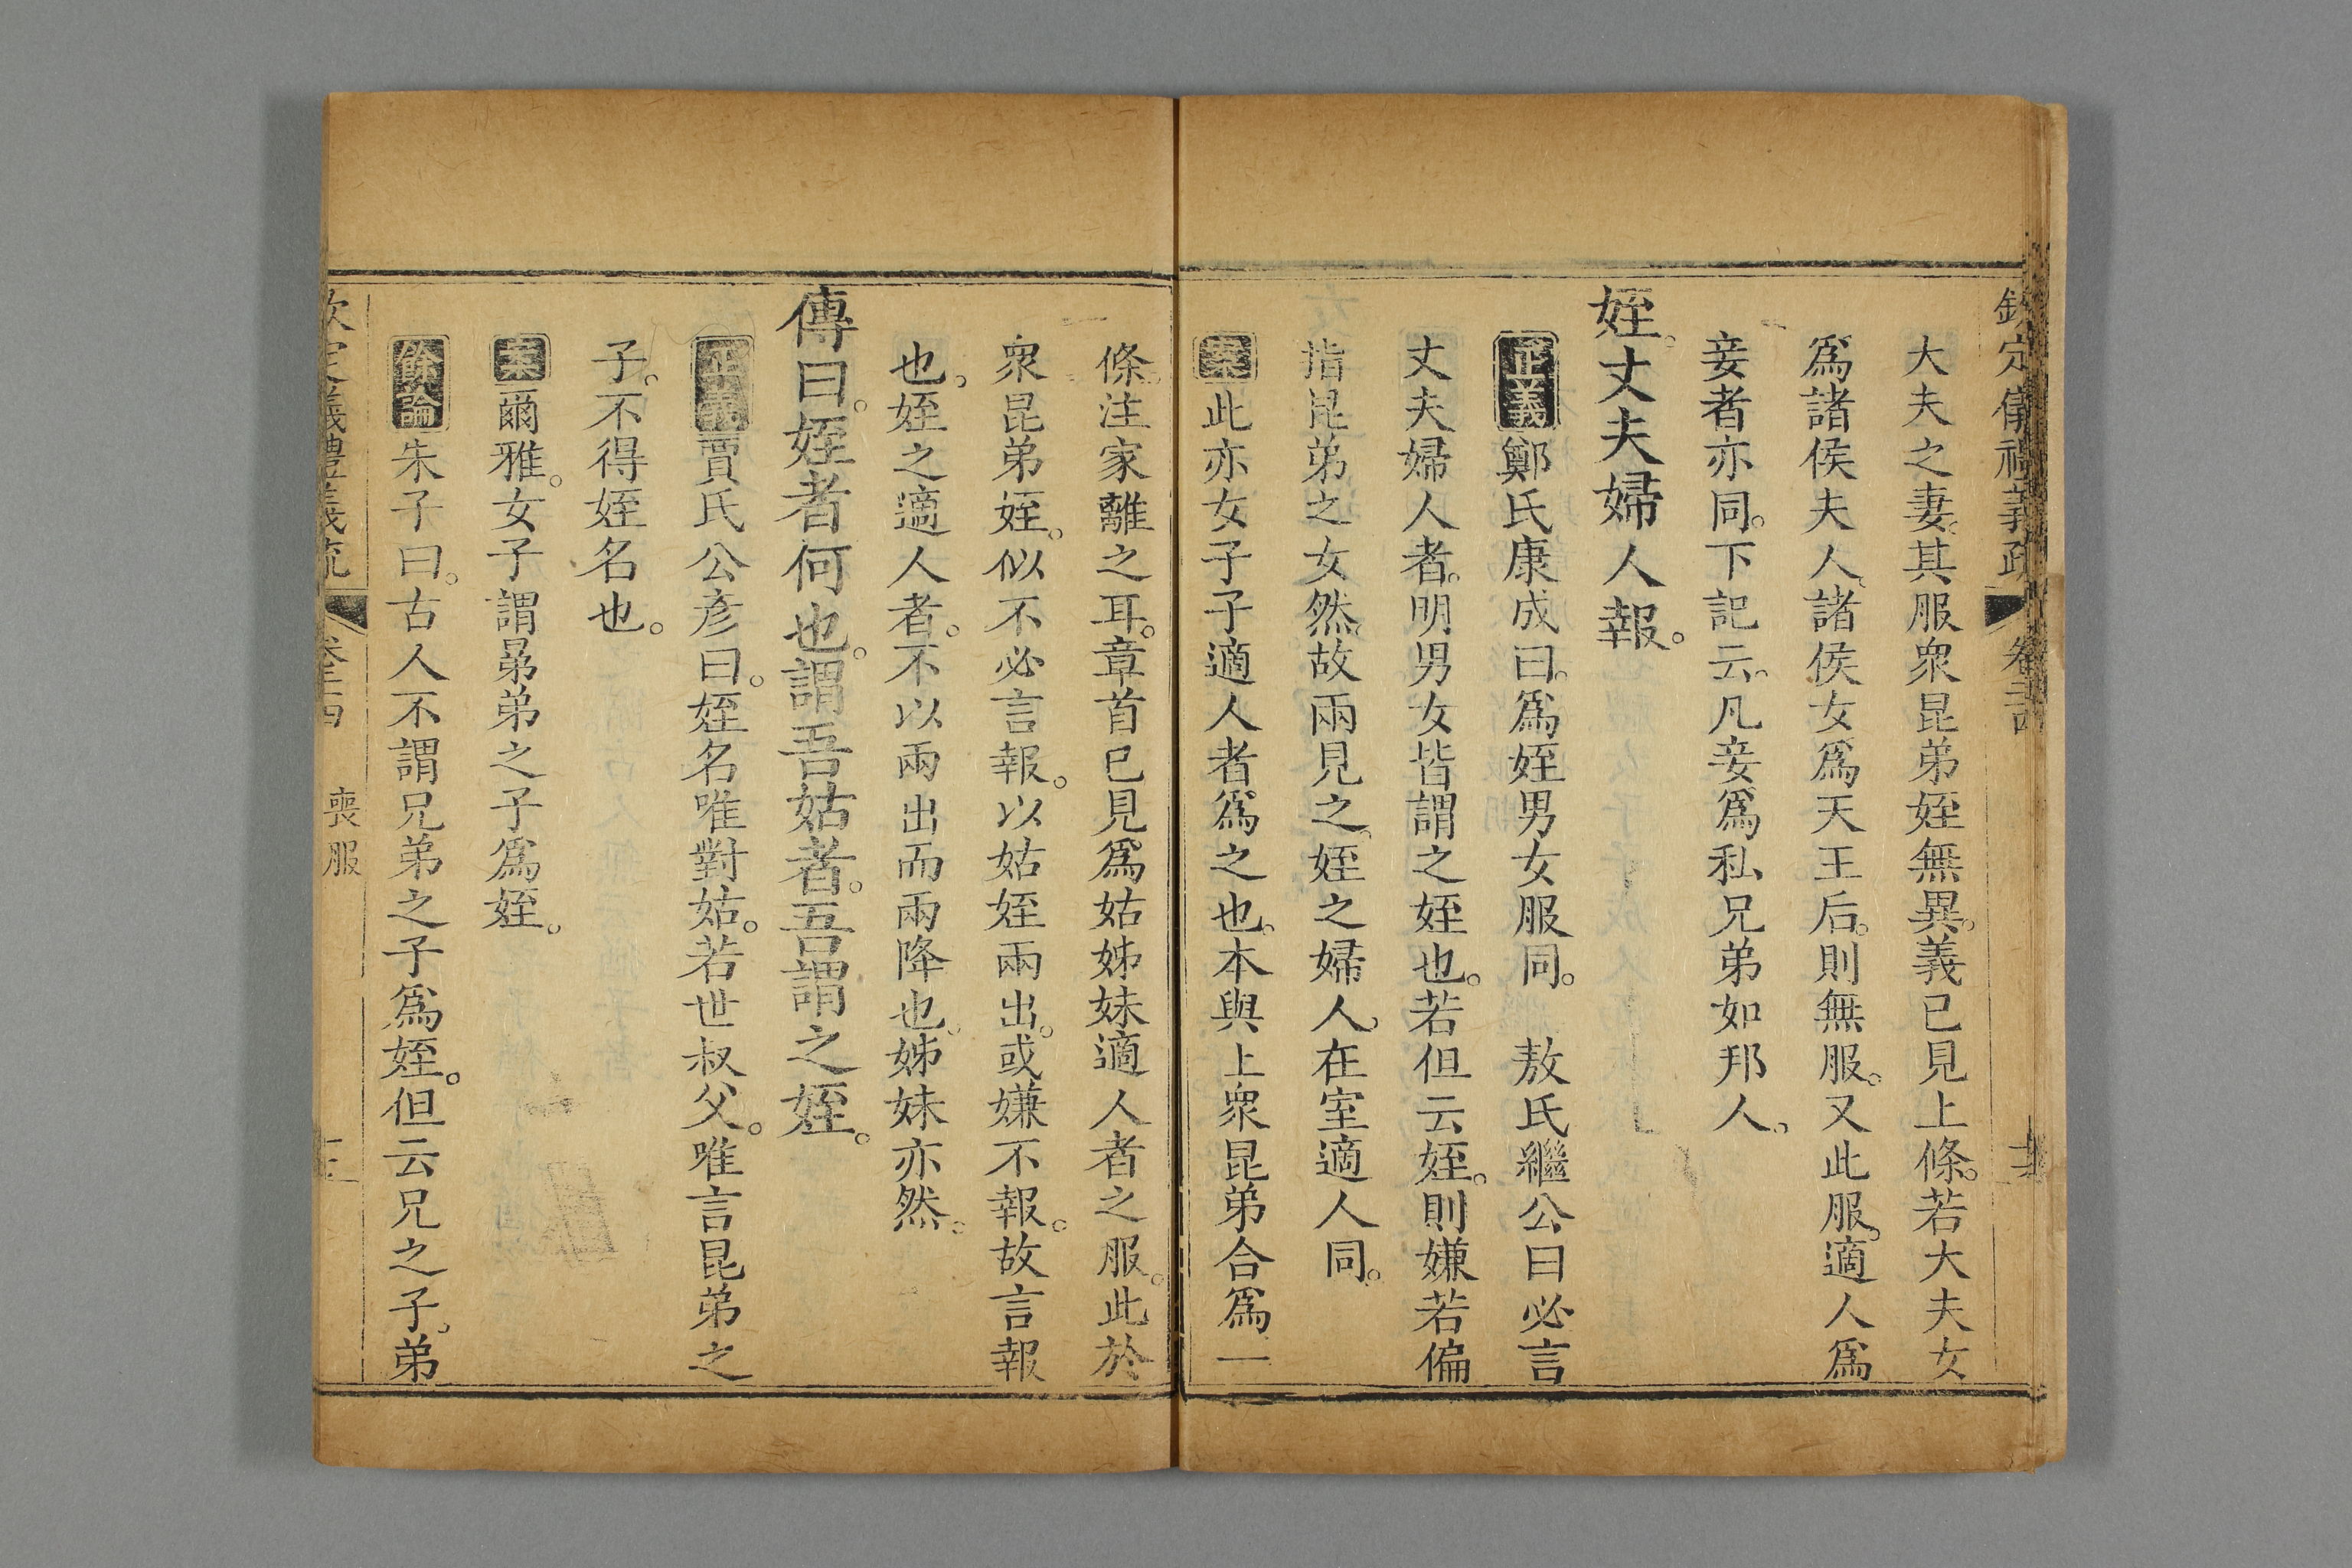 欽定儀禮義疏 卷二十四
大夫之妻。其服衆昆弟姪無異。義已見上條。若大夫女
爲諸侯夫人。諸侯女爲天王后。則無服。又此服。適人爲
妾者亦同。下記云。凡妾爲私兄弟如邦人。
姪。丈夫婦人報。
正義鄭氏康成曰。爲姪男女服同。 敖氏繼公曰必言
丈夫婦人者。明男女皆謂之姪也。若但云姪。則嫌若偏
指昆弟之女然。故兩見之。姪之婦人。在室適人同。
案此亦女子子適人者爲之也。本與上衆昆弟合爲一
條。注家離之耳。章首已見爲姑姊妹適人者之服。此於
衆昆弟姪。似不必言報。以姑姪兩出。或嫌不報。故言報
也。姪之適人者。不以兩出而兩降也。姊妹亦然。
傳曰。姪者何也。謂吾姑者。吾謂之姪。
正義賈氏公彥曰。姪名唯對姑。若世叔父。唯言昆弟之
子。不得姪名也。
案爾雅。女子謂晜弟之子爲姪。
餘論朱子曰。古人不謂兄弟之子爲姪。但云兄之子。弟
欽定儀禮義疏 卷二十四 喪服